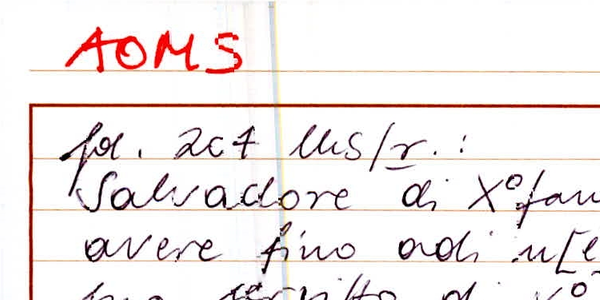 AOMS
fol. 207 MS/r. :
Salvadore di X°fan
avere fino adi
di X°